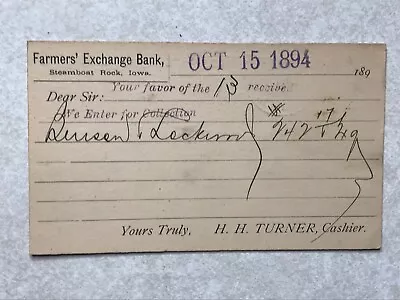 Farmers' Exchange Bank,
Steamboat Rock, Iowa.
OCT 15 1894
189
Your favor of the 13 receive
Dear Sir:
We Enter for Collection
Lockwood 242
Yours Truly, H. H. TURNER, Cashier.